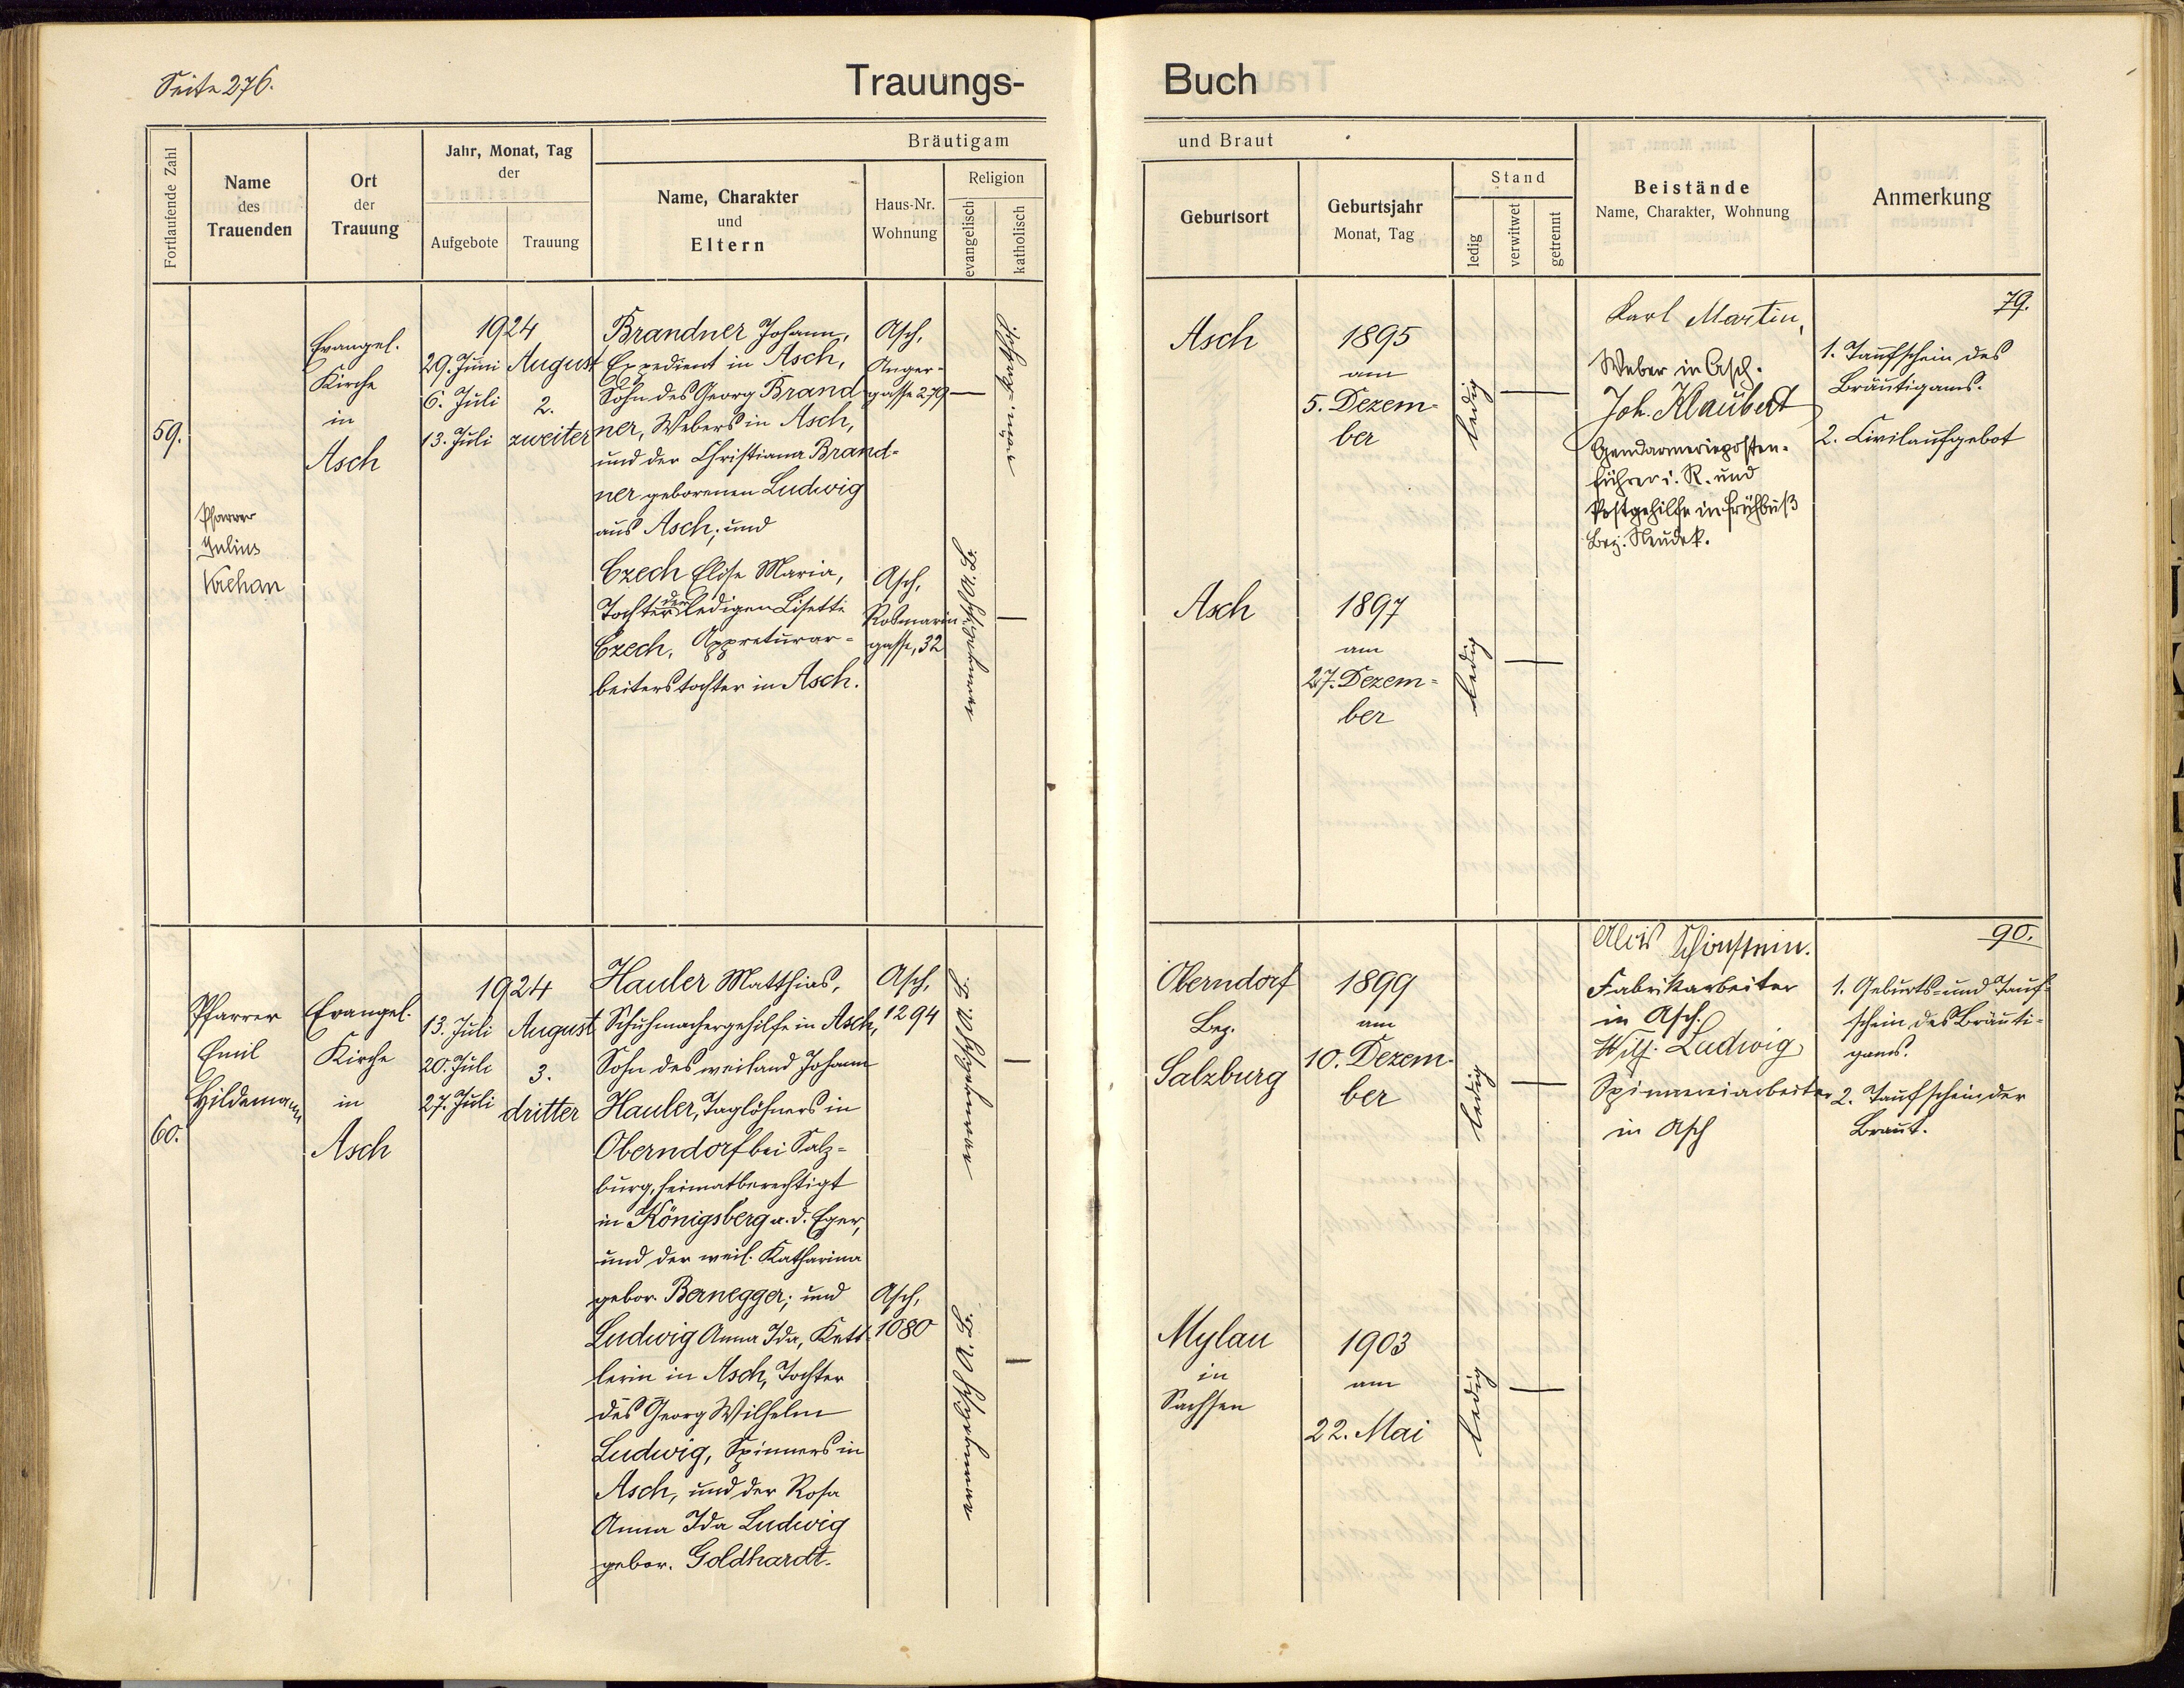 Seite 276.
Trauungs-
Fortlaufende Zahl
Name
des
Trauenden
Ort
der
Trauung
Jahr, Monat, Tag
der
Aufgebote
Trauung
Bräutigam
Name, Charakter
und
Eltern
Haus-Nr.
Wohnung
Religion
evangelisch
katholisch
59.
Pfarrer
Julius
Evangel.
Kirche
in
Asch
1924
29. Juni
6. Juli
13. Juli
August
2.
zweiter
Brandner Johann,
Expedient in Asch,
Sohn des Georg Brand-
ner, Webers in Asch,
und der Christiana Brand-
ner geborenen Ludwig
aus Asch; und
Czech Elise Maria,
Tochter der ledigen Lisette
Czech, Appreturar-
beiterstochter in Asch.
Asch,
Anger-
gasse 279
Asch,
Rosmarin-
gasse, 32
60.
Pfarrer
Emil
Hildemann
Evangel.
Kirche
in
Asch
1924
13. Juli
20. Juli
27. Juli
August
3.
dritter
Hauler Matthias,
Schuhmachergehilfe in Asch,
Sohn des weiland Johann
Hauler, Taglöhners in
Oberndorf bei Salz-
burg, heimatberechtigt
in Königsberg a. d. Eger,
und der weil. Katharina
gebor. Bernegger; und
Ludwig Anna Ida, Kett-
lerin in Asch, Tochter
des Georg Wilhelm
Ludwig, Spinners in
Asch, und der Rosa
Anna Ida Ludwig
gebor. Goldhardt.
Asch,
1294
Asch,
1080
Buch
und Braut
Geburtsort
Geburtsjahr
Monat, Tag
Stand
ledig
verwitwet
getrennt
Beistände
Name, Charakter, Wohnung
Anmerkung
Asch
1895
am
5. Dezem-
ber
ledig
Karl Martin,
Weber in Asch.
Joh. Klaubert
Gendarmerieposten-
führer i. R. und
Postgehilfe in Frühbuß
Bez. Neudek.
79.
1. Taufschein des
Bräutigams.
2. Civilaufgebot
Asch
1897
am
27. Dezem-
ber
ledig
Oberndorf
Bez.
Salzburg
1899
am
10. Dezem-
ber
ledig
Alois
Fabrikarbeiter
in Asch.
Wilh. Ludwig
Spinnereiarbeiter
in Asch
90.
1. Geburts- und Tauf-
schein des Bräuti-
gams.
2. Taufschein der
Braut.
Mylau
in
Sachsen
1903
am
22. Mai
ledig